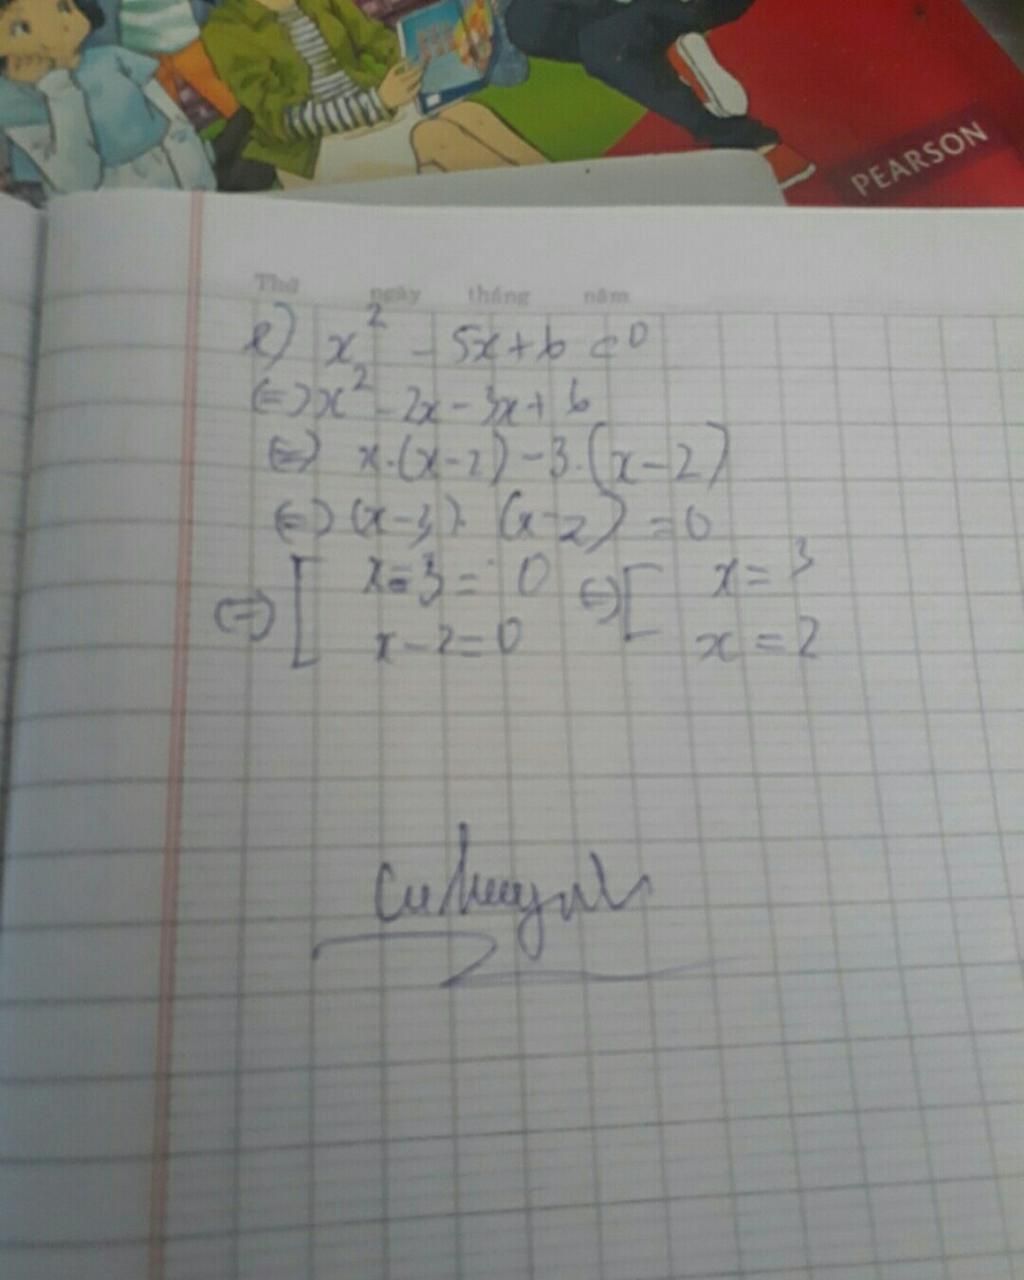 PEARSON
Thứ ngày tháng năm
e) x² - 5x + 6 = 0
(=) x² - 2x - 3x + 6
(=) x.(x-2) - 3.(x-2)
(=) (x-3). (x-2) = 0
(=) [ x-3 = 0 (=) [ x = 3
x-2 = 0 x = 2